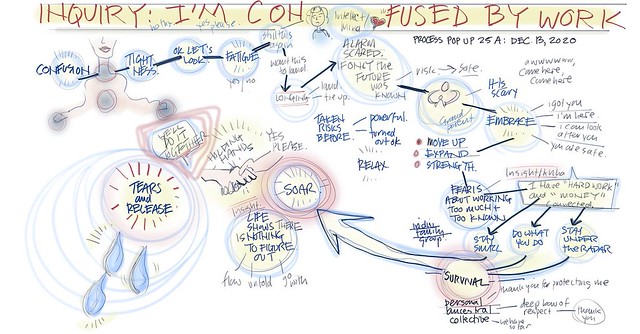 INQUIRY: I'M CON FUSED BY WORK
Intellect/
Mind
PROCESS POP UP 25A: DEC. 13, 2020
CONFUSION
TIGHT
NESS.
yes please.
OK LET'S
LOOK.
FATIGUE
yes/no
still this
again
want this
to land
LONGING
land.
tie up.
ALARM
SCARED.
IF ONLY THE
FUTURE
WAS
KNOWN
risk → safe.
Grand
parent
It Is
scary
awwwww,
come here,
come here
EMBRACE
i got you
i'm here.
i can look
after you
you are safe.
TAKEN
RISKS
BEFORE.
powerful.
turned
out ok
RELAX
MOVE UP
EXPAND
STRENGTH.
FEAR IS
ABOUT WORKING
TOO MUCH +
TOO KNOWN
Insight/
I have "HARD WORK"
and "MONEY"
connected.
STAY
SMALL
DO WHAT
YOU DO
STAY
UNDER
THE RADAR
indiv.
family
group.
SURVIVAL
thank you for protecting me
personal
ancestral
collective
deep bow of
respect
thank
you
we have
far
YES,
PLEASE.
HOLDING
HANDS
TOGETHER
TEARS
and
RELEASE
SOAR
insight
LIFE
SHOWS THERE
IS NOTHING
TO FIGURE
OUT
flow unfold go with